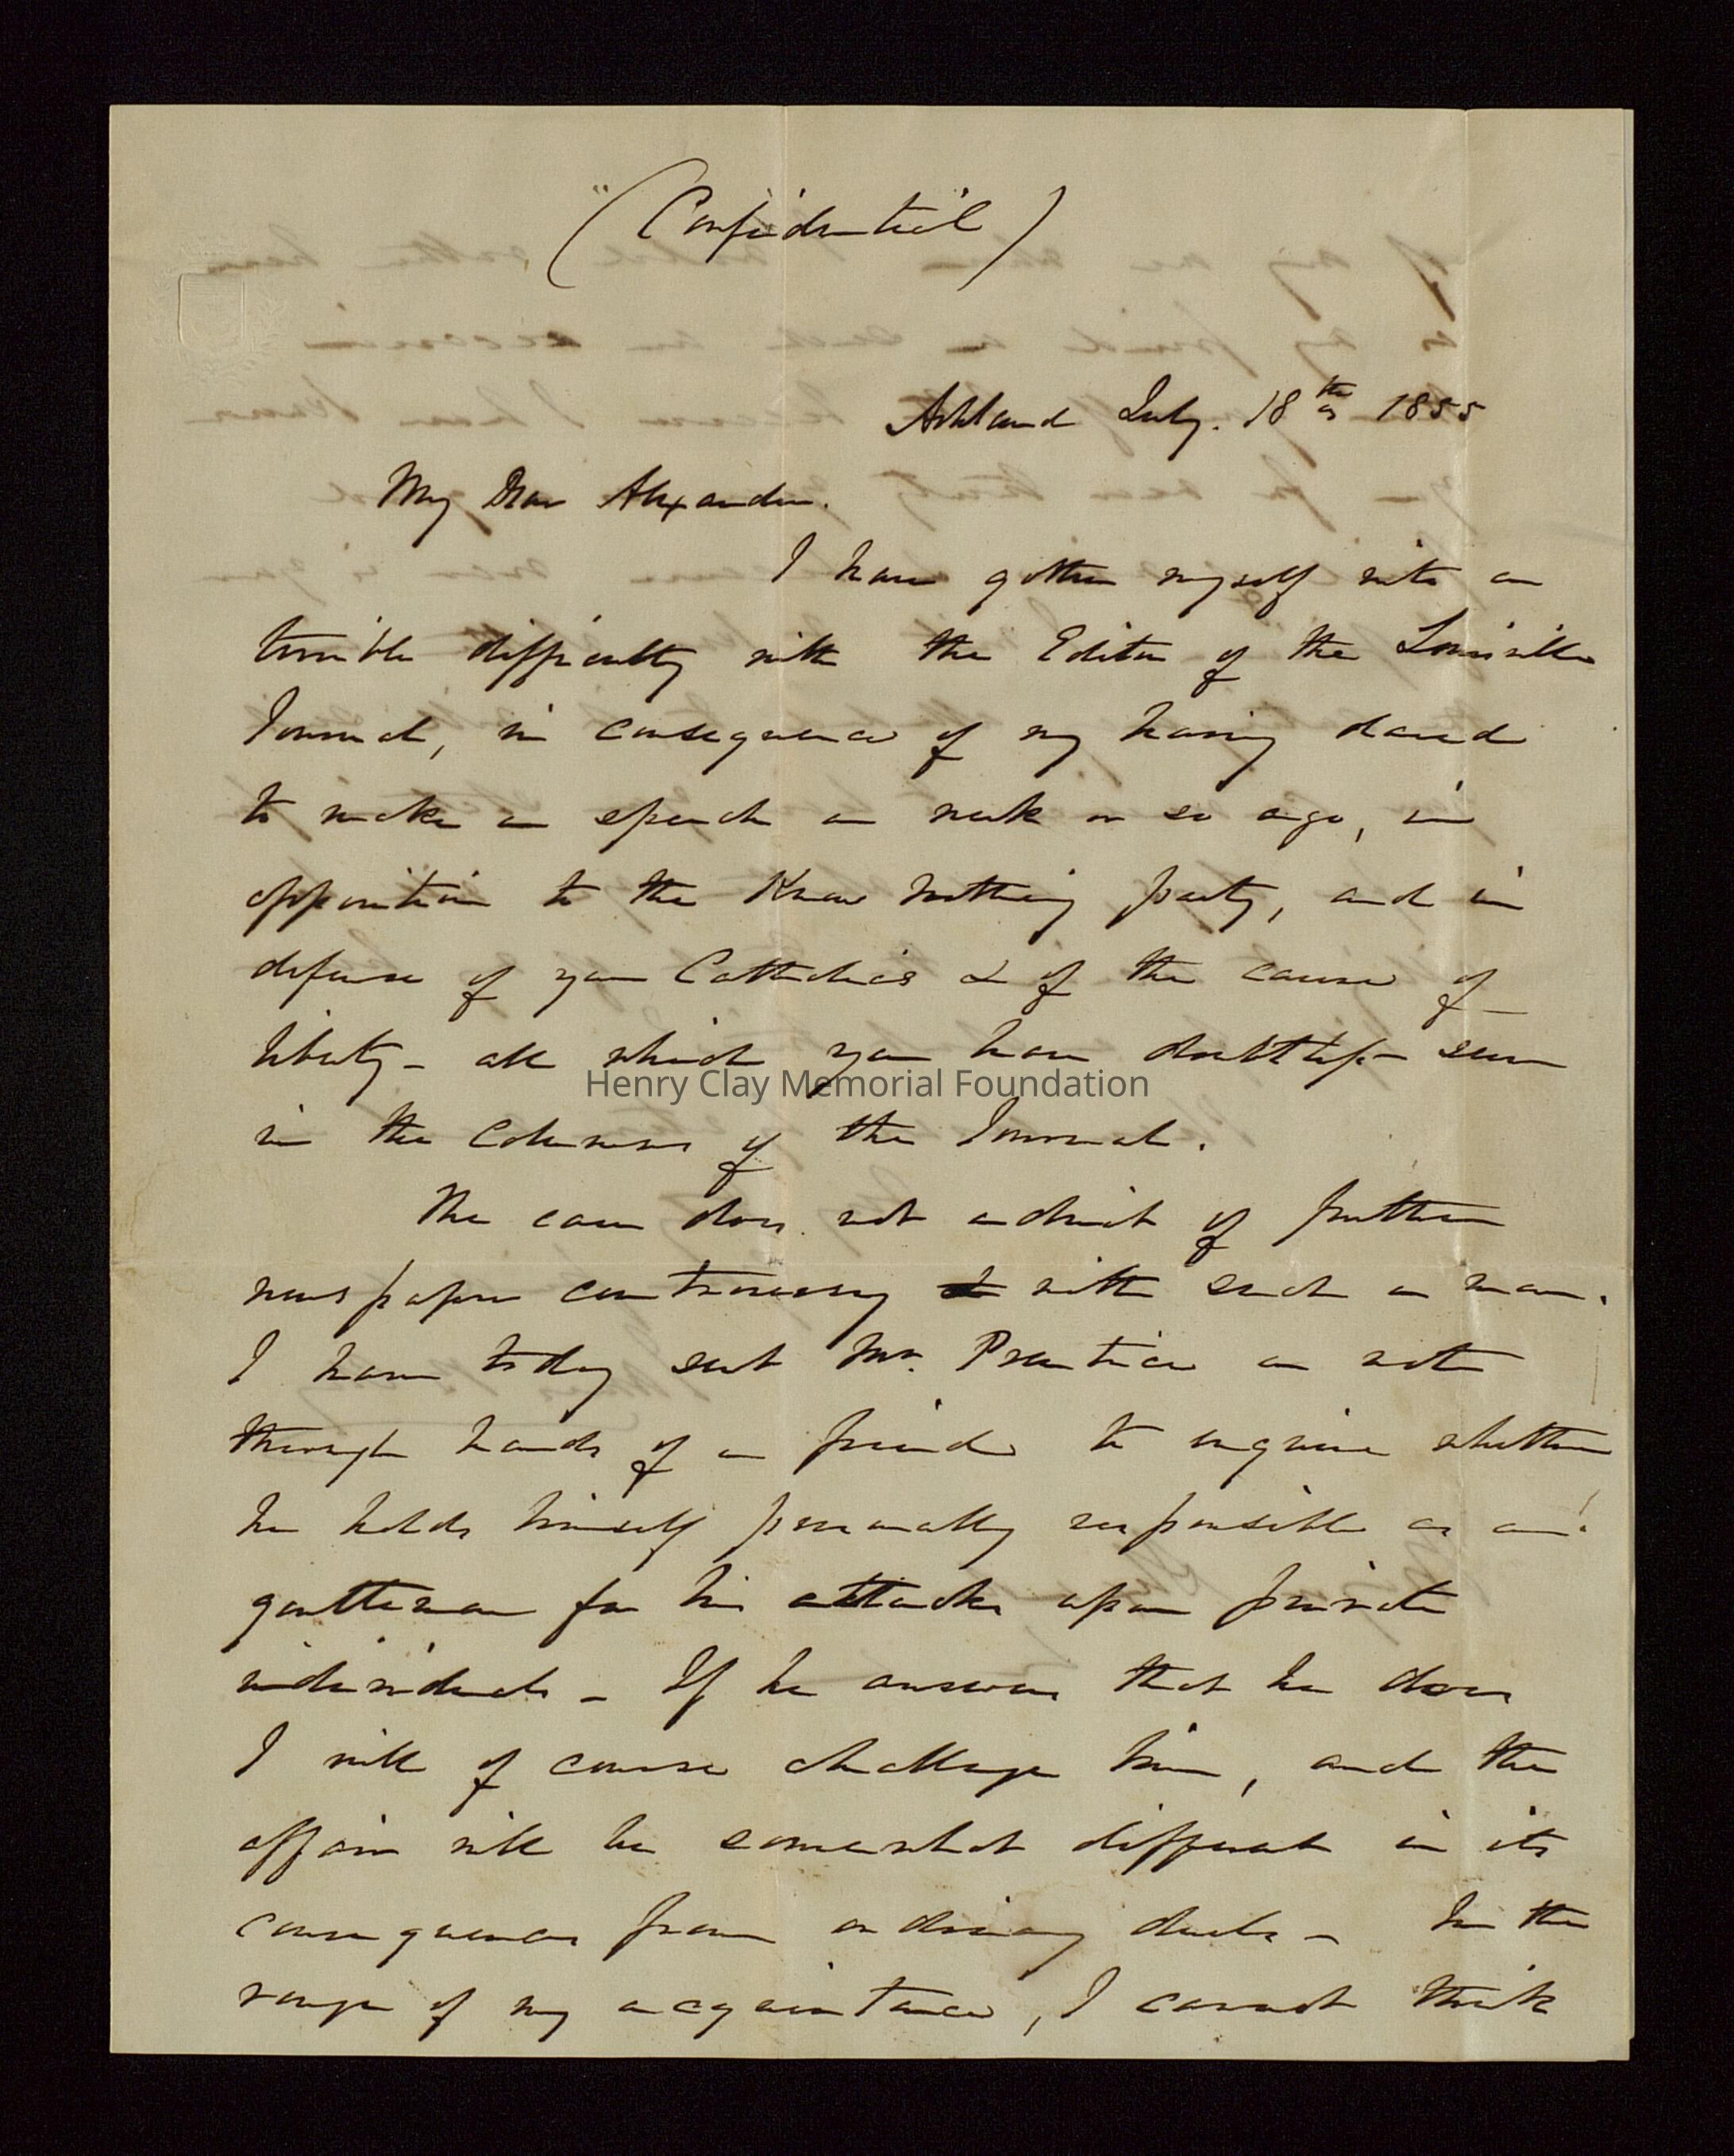 "(Confidential)
Ashland July. 18th 1855
My Dear Alexander.
I have gotten myself into a
terrible difficulty with the Editor of the Louisville
Journal, in consequence of my having dared
to make a speech a week or so ago, in
opposition to the Know Nothing party, and in
defense of you Catholics & of the cause of
liberty - all which you have doubtless seen
in the columns of the Journal.
The case does not admit of further
newspaper controversy with such a man.
I have today sent Mr. Prentice a note
through hands of a friend to enquire whether
he holds himself personally responsible as a
gentleman for his attacks upon private
individuals - If he answers that he does
I will of course challenge him, and the
affair will be somewhat different in its
consequences from ordinary duels - In the
range of my acquaintance, I cannot think
Henry Clay Memorial Foundation